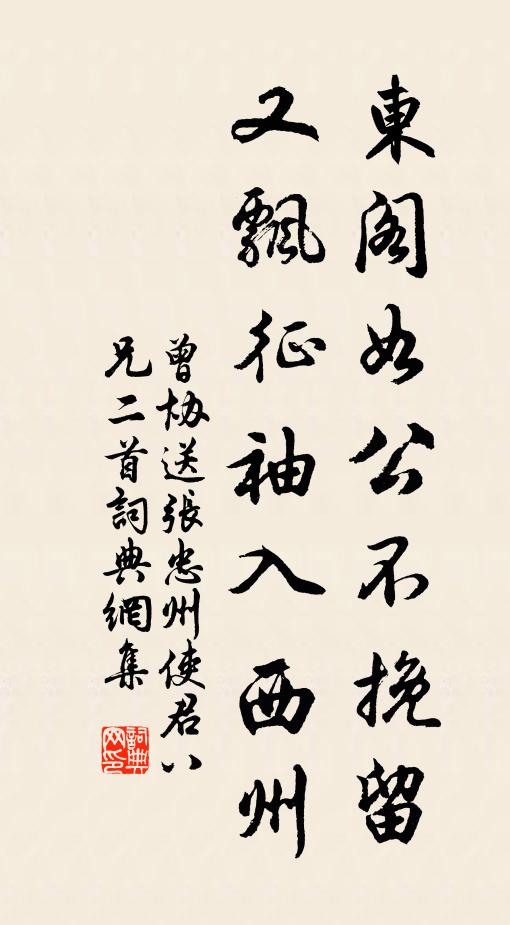 東閣如公不挽留
又飄征袖入西州
曾協送張忠州使君八
兄二首詞典網集
詞典
网印